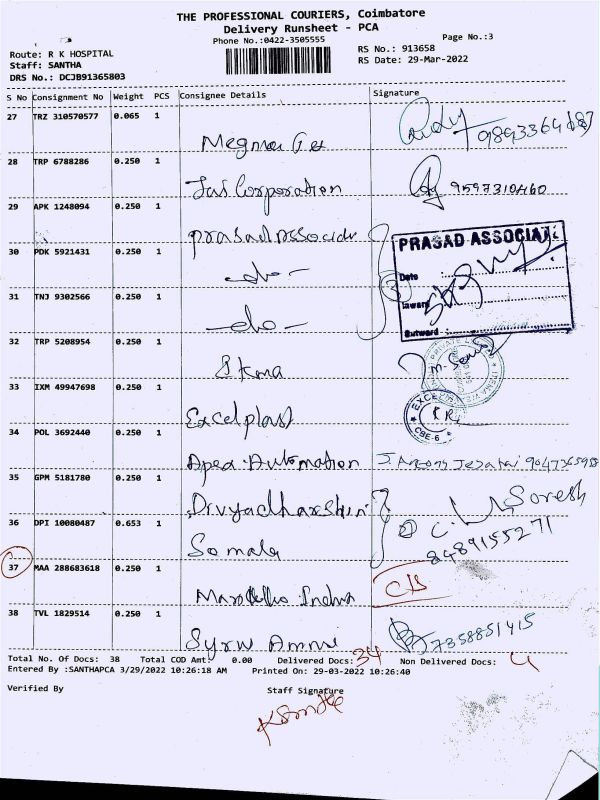 THE PROFESSIONAL COURIERS, Coimbatore
Delivery Runsheet - PCA
Phone No.:0422-3505555 Page No.:3
Route: R K HOSPITAL RS No.: 913658
Staff: SANTHA RS Date: 29-Mar-2022
DRS No.: DCJB91365803
S No Consignment No Weight PCS Consignee Details Signature
27 TRZ 310570577 0.065 1
Megma
28 TRP 6788286 0.250 1
Jas Corporation 9597310460
29 APK 1248094 0.250 1
prasad Associate
PRASAD ASSOCIATE
30 PDK 5921431 0.250 1
-do-
Date :
Inward :
31 TNJ 9302566 0.250 1
-do-
Outward :
32 TRP 5208954 0.250 1
33 IXM 49947698 0.250 1
Excel plast
CBE-6
34 POL 3692440 0.250 1
Apex Automation
35 GPM 5181780 0.250 1
Divyadharshini Suresh
36 DPI 10080487 0.653 1
8489155271
37 MAA 288683618 0.250 1
38 TVL 1829514 0.250 1
7358851415
Total No. Of Docs: 38 Total COD Amt: 0.00 Delivered Docs: 34 Non Delivered Docs: 4
Entered By :SANTHAPCA 3/29/2022 10:26:18 AM Printed On: 29-03-2022 10:26:40
Verified By Staff Signature